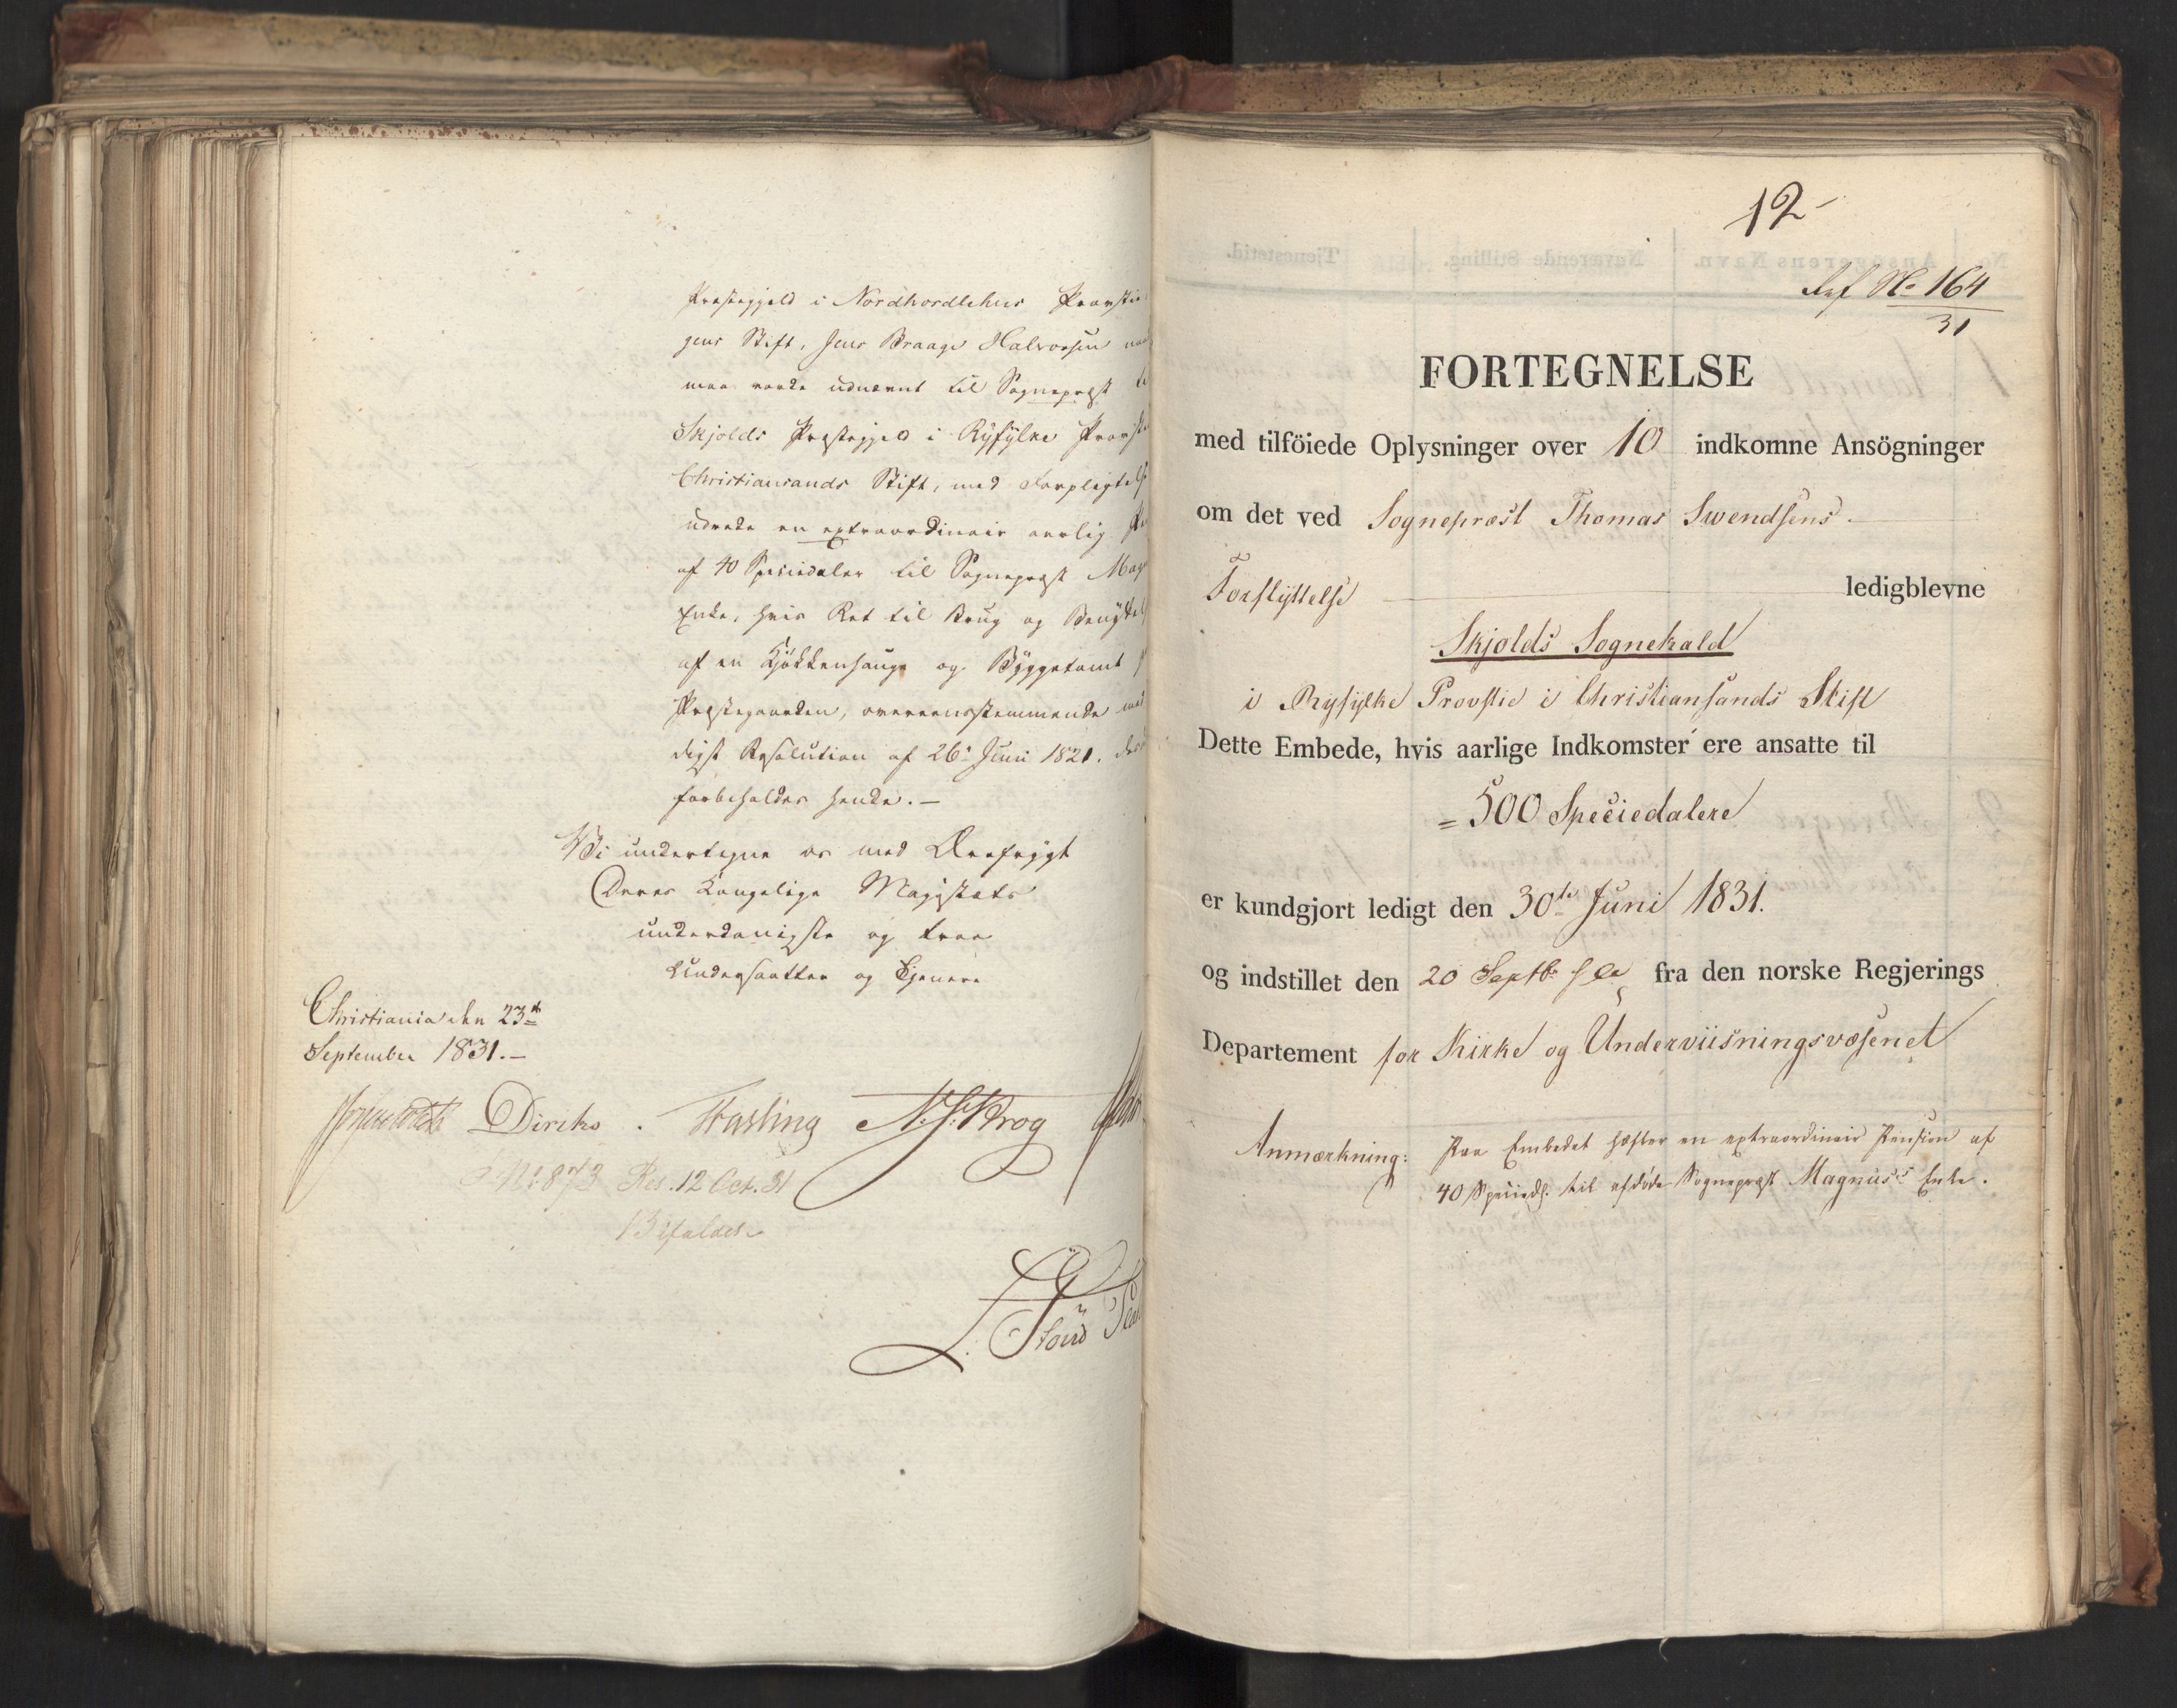 Præstegjeld i Nordhordlehns Provstie
gens Stift, Jens Braage Halvorsen
maa vorde udnævnt til Sognepræst
Skjolds Præstegjeld i Ryfylke
Christiansands Stift, med Forpligtelse
udrede en extraordinair aarlig
af 40 Speciedaler til Sognepræst
Enke, hvis Ret til Brug og
af en Kjøkkenhauge og Byggetomt
Præstegaarden, overeensstemmende
digst Resolution af 26de Juni 1821.
forbeholdes hende. –
Vi undertegne os med Ærefrygt
Deres Kongelige Majestæts
underdanigste og troe
Undersaatter og Tjenere
Christiania den 23de
September 1831. –
Diriks . Fasting N. J. Krog
No 873 Res. 12 Oct. 31
Bifaldes
12
Ref No 164
31
FORTEGNELSE
med tilföiede Oplysninger over 10 indkomne Ansögninger
om det ved Sognepræst Thomas Swendsens
Forflyttelse ledigblevne
Skjolds Sognekald
i Ryfylke Provstie i Christiansands Stift
Dette Embede, hvis aarlige Indkomster ere ansatte til
= 500 Speciedalere
er kundgjort ledigt den 30te Juni 1831.
og indstillet den 20 Septb: fra den norske Regjerings
Departement for Kirke og Underviisningsvæsenet
Anmærkning: Paa Embedet hæfter en extraordinair Pension af
40 Speciedlr. til afdøde Sognepræst Magnus's Enke.